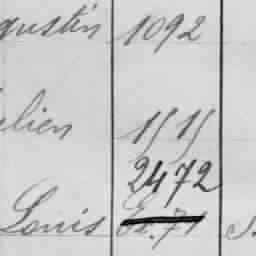 gustin 1092
lien 1515
2472
Louis